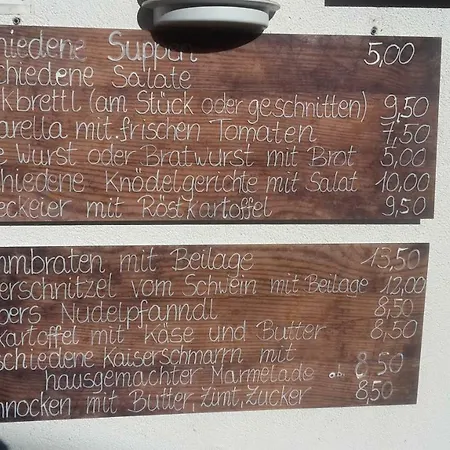 hiedene Suppen 5,00
chiedene Salate
kbrettl (am Stück oder geschnitten) 9,50
arella mit frischen Tomaten 7,50
e Wurst oder Bratwurst mit Brot 5,00
chiedene Knödelgerichte mit Salat 10,00
eckeier mit Röstkartoffel 9,50
mmbraten mit Beilage 13,50
erschnitzel vom Schwein mit Beilage 12,00
bers Nudelpfanndl 8,50
kartoffel mit Käse und Butter 8,50
schiedene Kaiserschmarrn mit
hausgemachter Marmelade ab 8,50
nnocken mit Butter, Zimt, Zucker 8,50